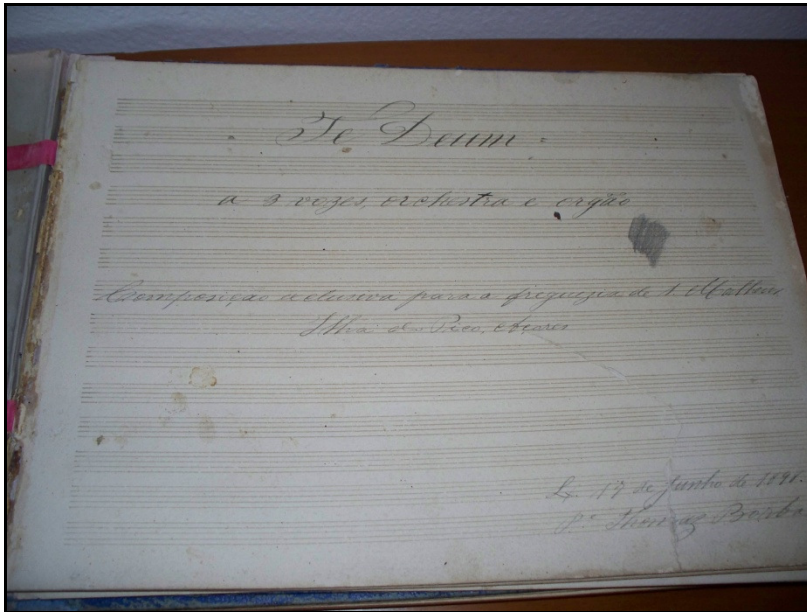 Te Deum
a 3 vozes, orchestra e orgão
Composição exclusiva para a freguezia de S. Matheus
Ilha do Pico, Açores
Lx. 17 de Junho de
P.e Thomaz Borba